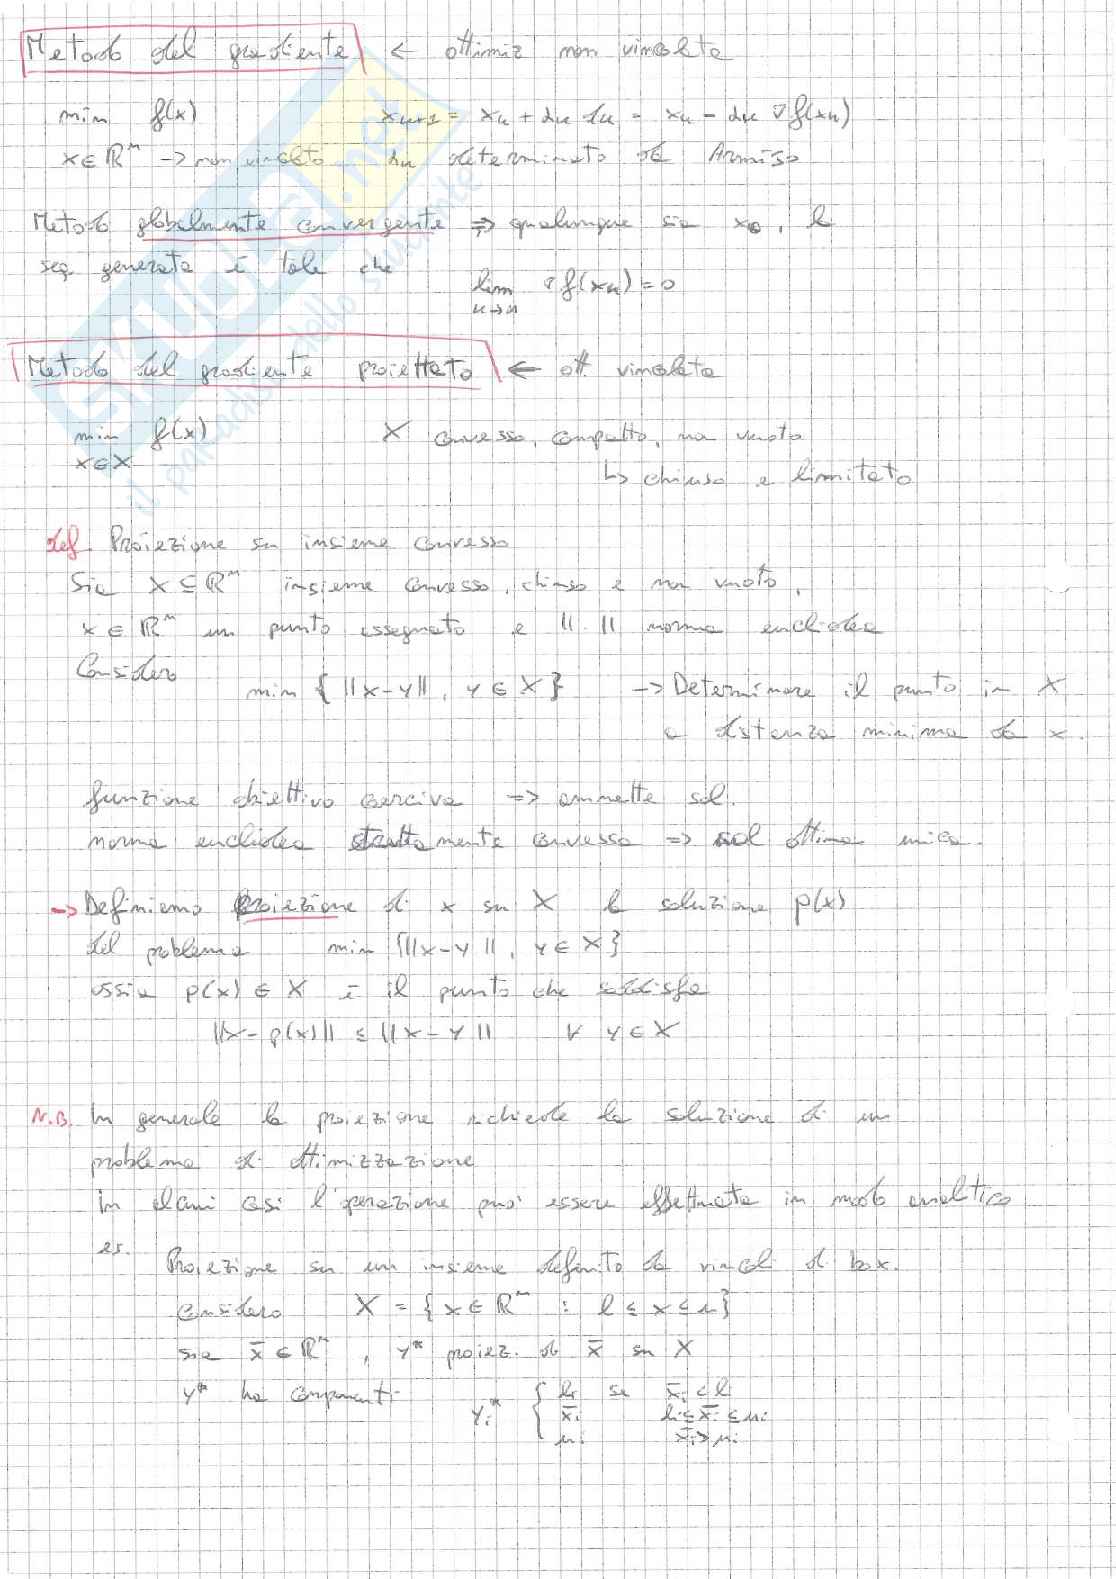 Metodo del gradiente ← ottimiz non vincolata
min f(x) x_{k+1} = x_k + α_k d_k = x_k - α_k ∇f(x_k)
x ∈ ℝⁿ → non vincolato α_k determinato da Armijo
Metodo globalmente convergente ⇒ qualunque sia x₀, la
seq generata è tale che
lim ∇f(x_k) = 0
Metodo del gradiente proiettato ← ott. vincolata
min f(x) X convesso, compatto, non vuoto
x ∈ X
↳ chiuso e limitato
def. Proiezione su insieme convesso
Sia X ⊆ ℝⁿ insieme convesso, chiuso e non vuoto,
x ∈ ℝⁿ un punto assegnato e ||·|| norma euclidea
Considero
min { ||x-y||, y ∈ X } → Determinare il punto in X
a distanza minima da x.
funzione obiettivo coerciva ⇒ ammette sol.
norma euclidea strettamente convessa ⇒ sol ottima unica.
→ Definiamo proiezione di x su X la soluzione p(x)
del problema min {||x-y||, y ∈ X}
ossia p(x) ∈ X è il punto che soddisfa
||x - p(x)|| ≤ ||x - y|| ∀ y ∈ X
N.B. In generale la proiezione richiede la soluzione di un
problema di ottimizzazione
In alcuni casi l'operazione può essere effettuata in modo analitico
es.
Proiezione su un insieme definito da vincoli di box.
considero X = { x ∈ ℝⁿ : l ≤ x ≤ u }
sia x̄ ∈ ℝⁿ, y* proiez. di x̄ su X
y* ha componenti
y_i* { l_i se x̄_i < l_i
x̄_i l_i ≤ x̄_i ≤ u_i
u_i x̄_i > u_i
il paradiso dello studente